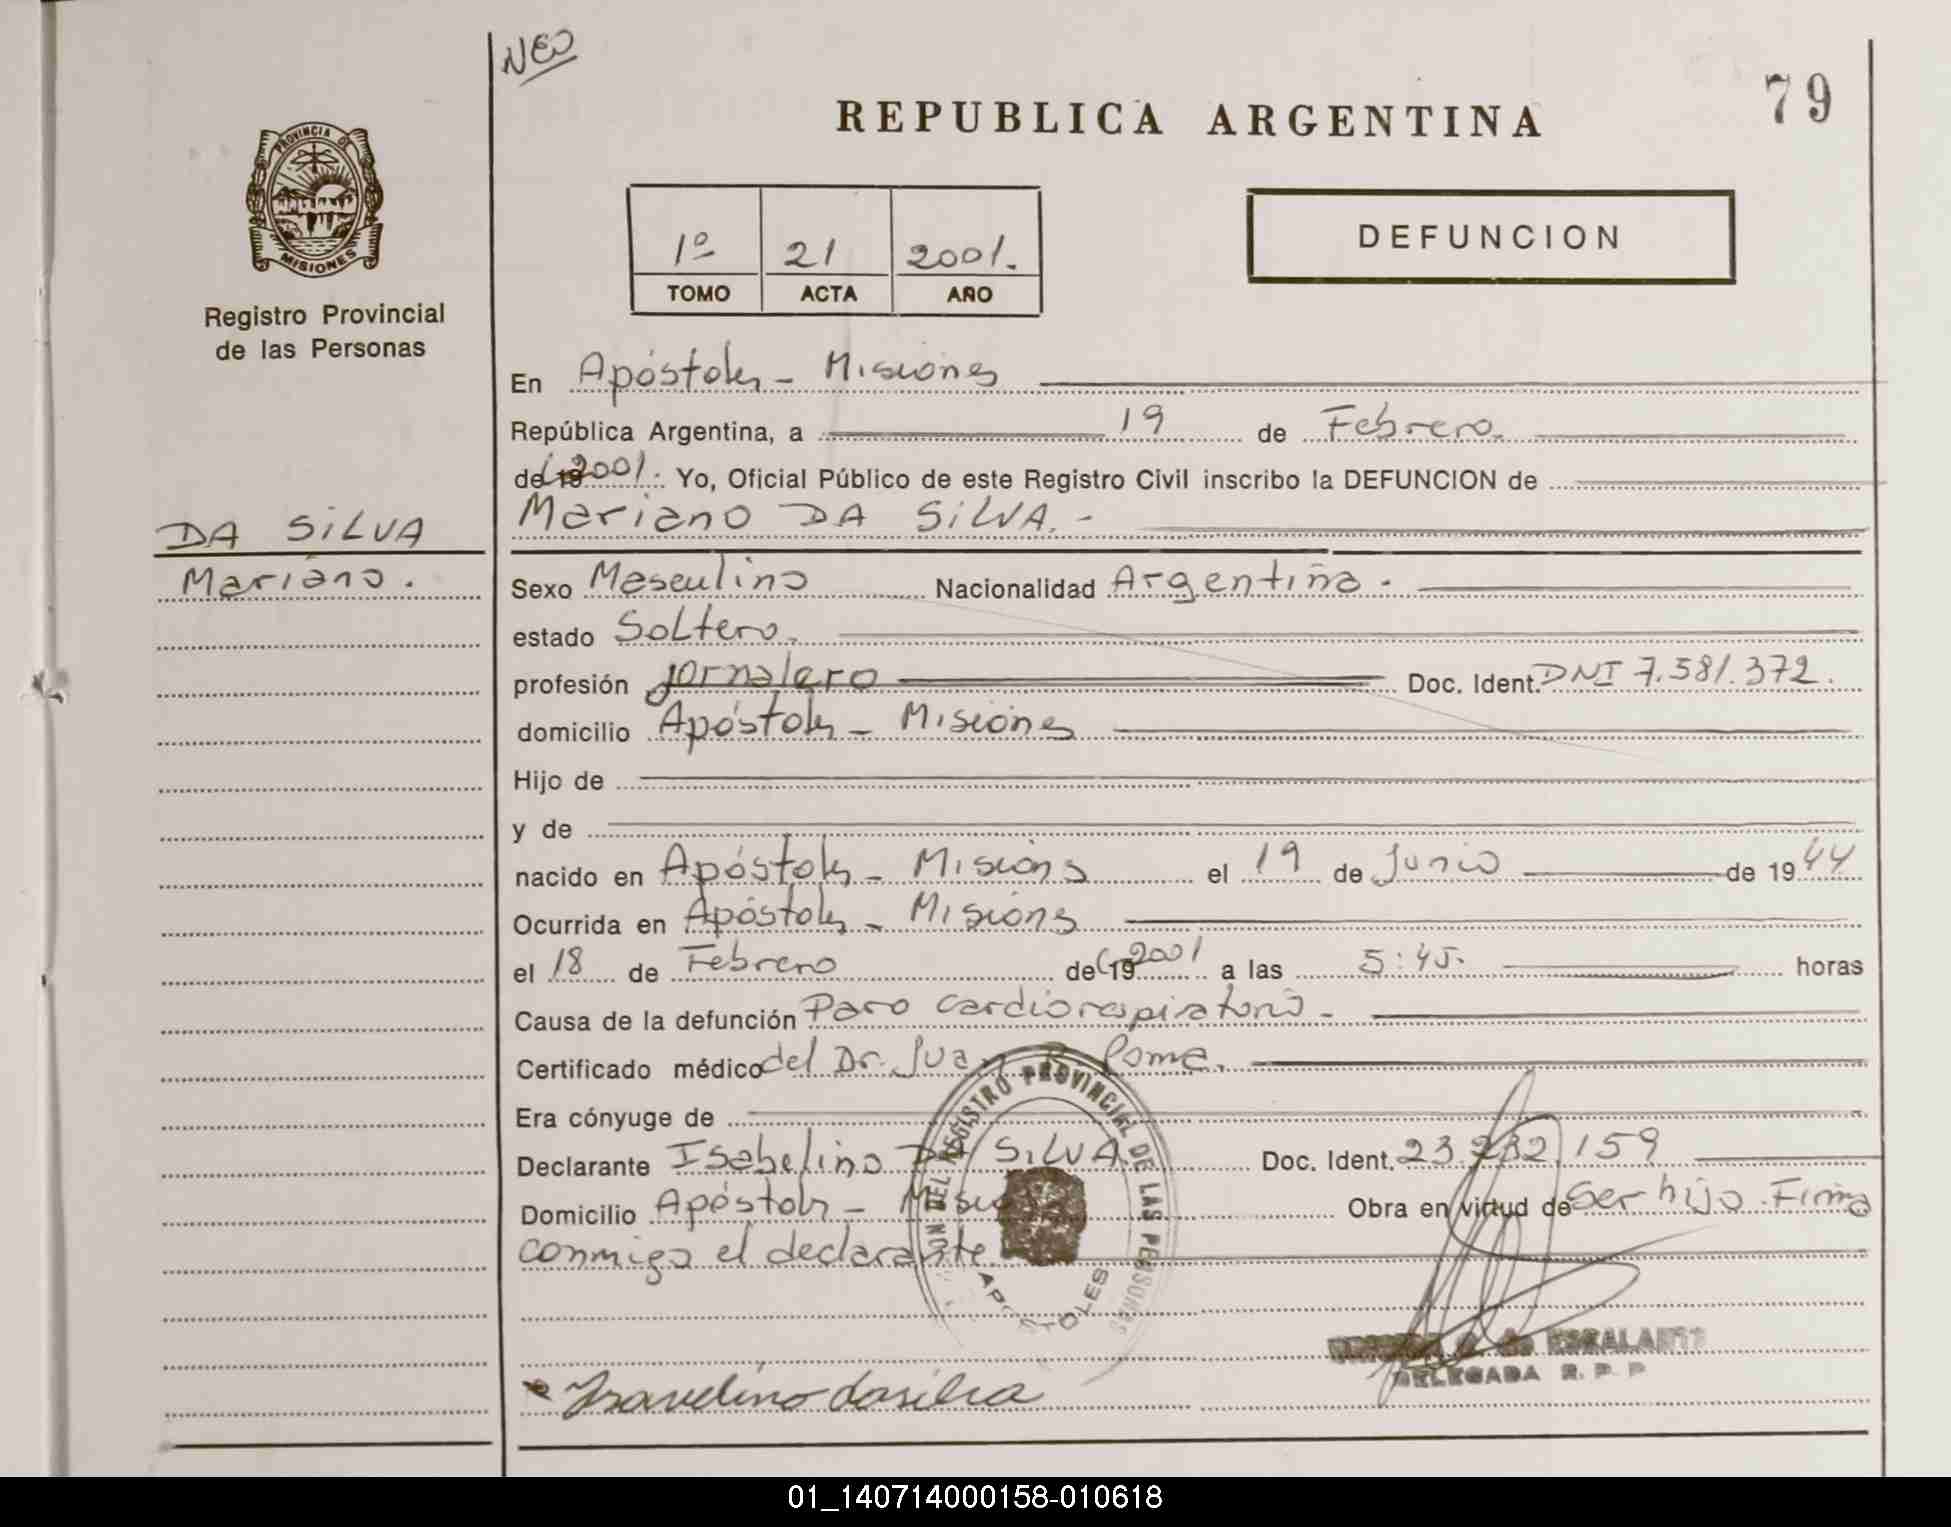 NEO
79
REPUBLICA ARGENTINA
PROVINCIA DE
MISIONES
Registro Provincial
de las Personas
1º 21 2001.
TOMO ACTA AÑO
DEFUNCION
En Apóstoles - Misiones
República Argentina, a 19 de Febrero.
de 19 (2001. Yo, Oficial Público de este Registro Civil inscribo la DEFUNCION de
Mariano DA SILVA. -
DA SILVA
Mariano.
Sexo Masculino Nacionalidad Argentina.
estado Soltero.
profesión jornalero Doc. Ident. DNI 7.581.372.
domicilio Apóstoles - Misiones
Hijo de
y de
nacido en Apóstoles - Misiones el 19 de Junio de 1944
Ocurrida en Apóstoles - Misiones
el 18 de Febrero de (19 2001 a las 5:45. horas
Causa de la defunción Paro cardiorespiratorio -
Certificado médico del Dr. Juan R. Poma.
Era cónyuge de
Declarante Isabelino DA SILVA. Doc. Ident. 23.232.159
Domicilio Apóstoles - Obra en virtud de Ser hijo. Firma
conmigo el declarante.
DEL REGISTRO PROVINCIAL DE LAS PERSONAS
APOSTOLES
ESCALANTE
DELEGADA R. P. P
Isavelino dasilva
01_140714000158-010618